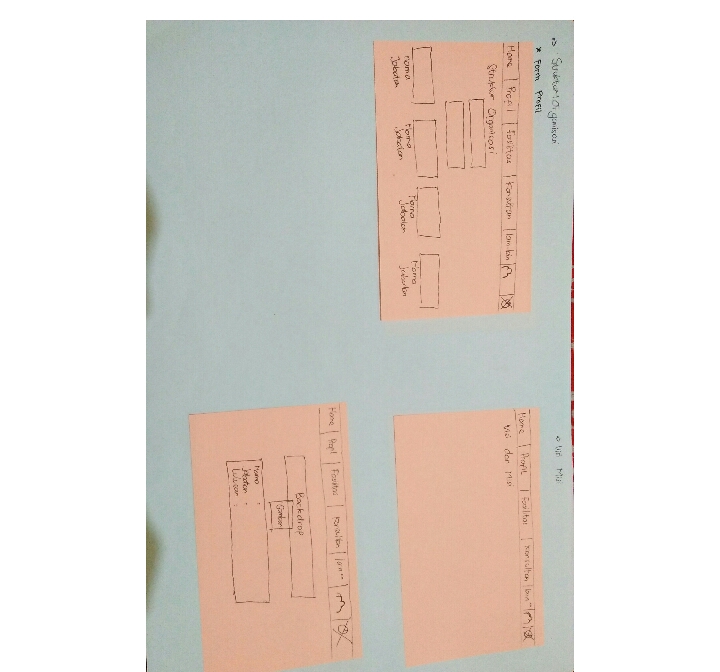 Struktur Organisasi
* Form Profil
Home | Profil | Fasilitas | Konsultan | lain lain
Struktur Organisasi
Nama
Jabatan
Nama
Jabatan
Nama
Jabatan
Nama
Jabatan
Visi Misi
Home | Profil | Fasilitas | Konsultan | lain"
Visi dan Misi
Home | Profil | Fasilitas | Konsultan | lain"
Backdrop
Gambar
Nama :
Jabatan :
Lulusan :